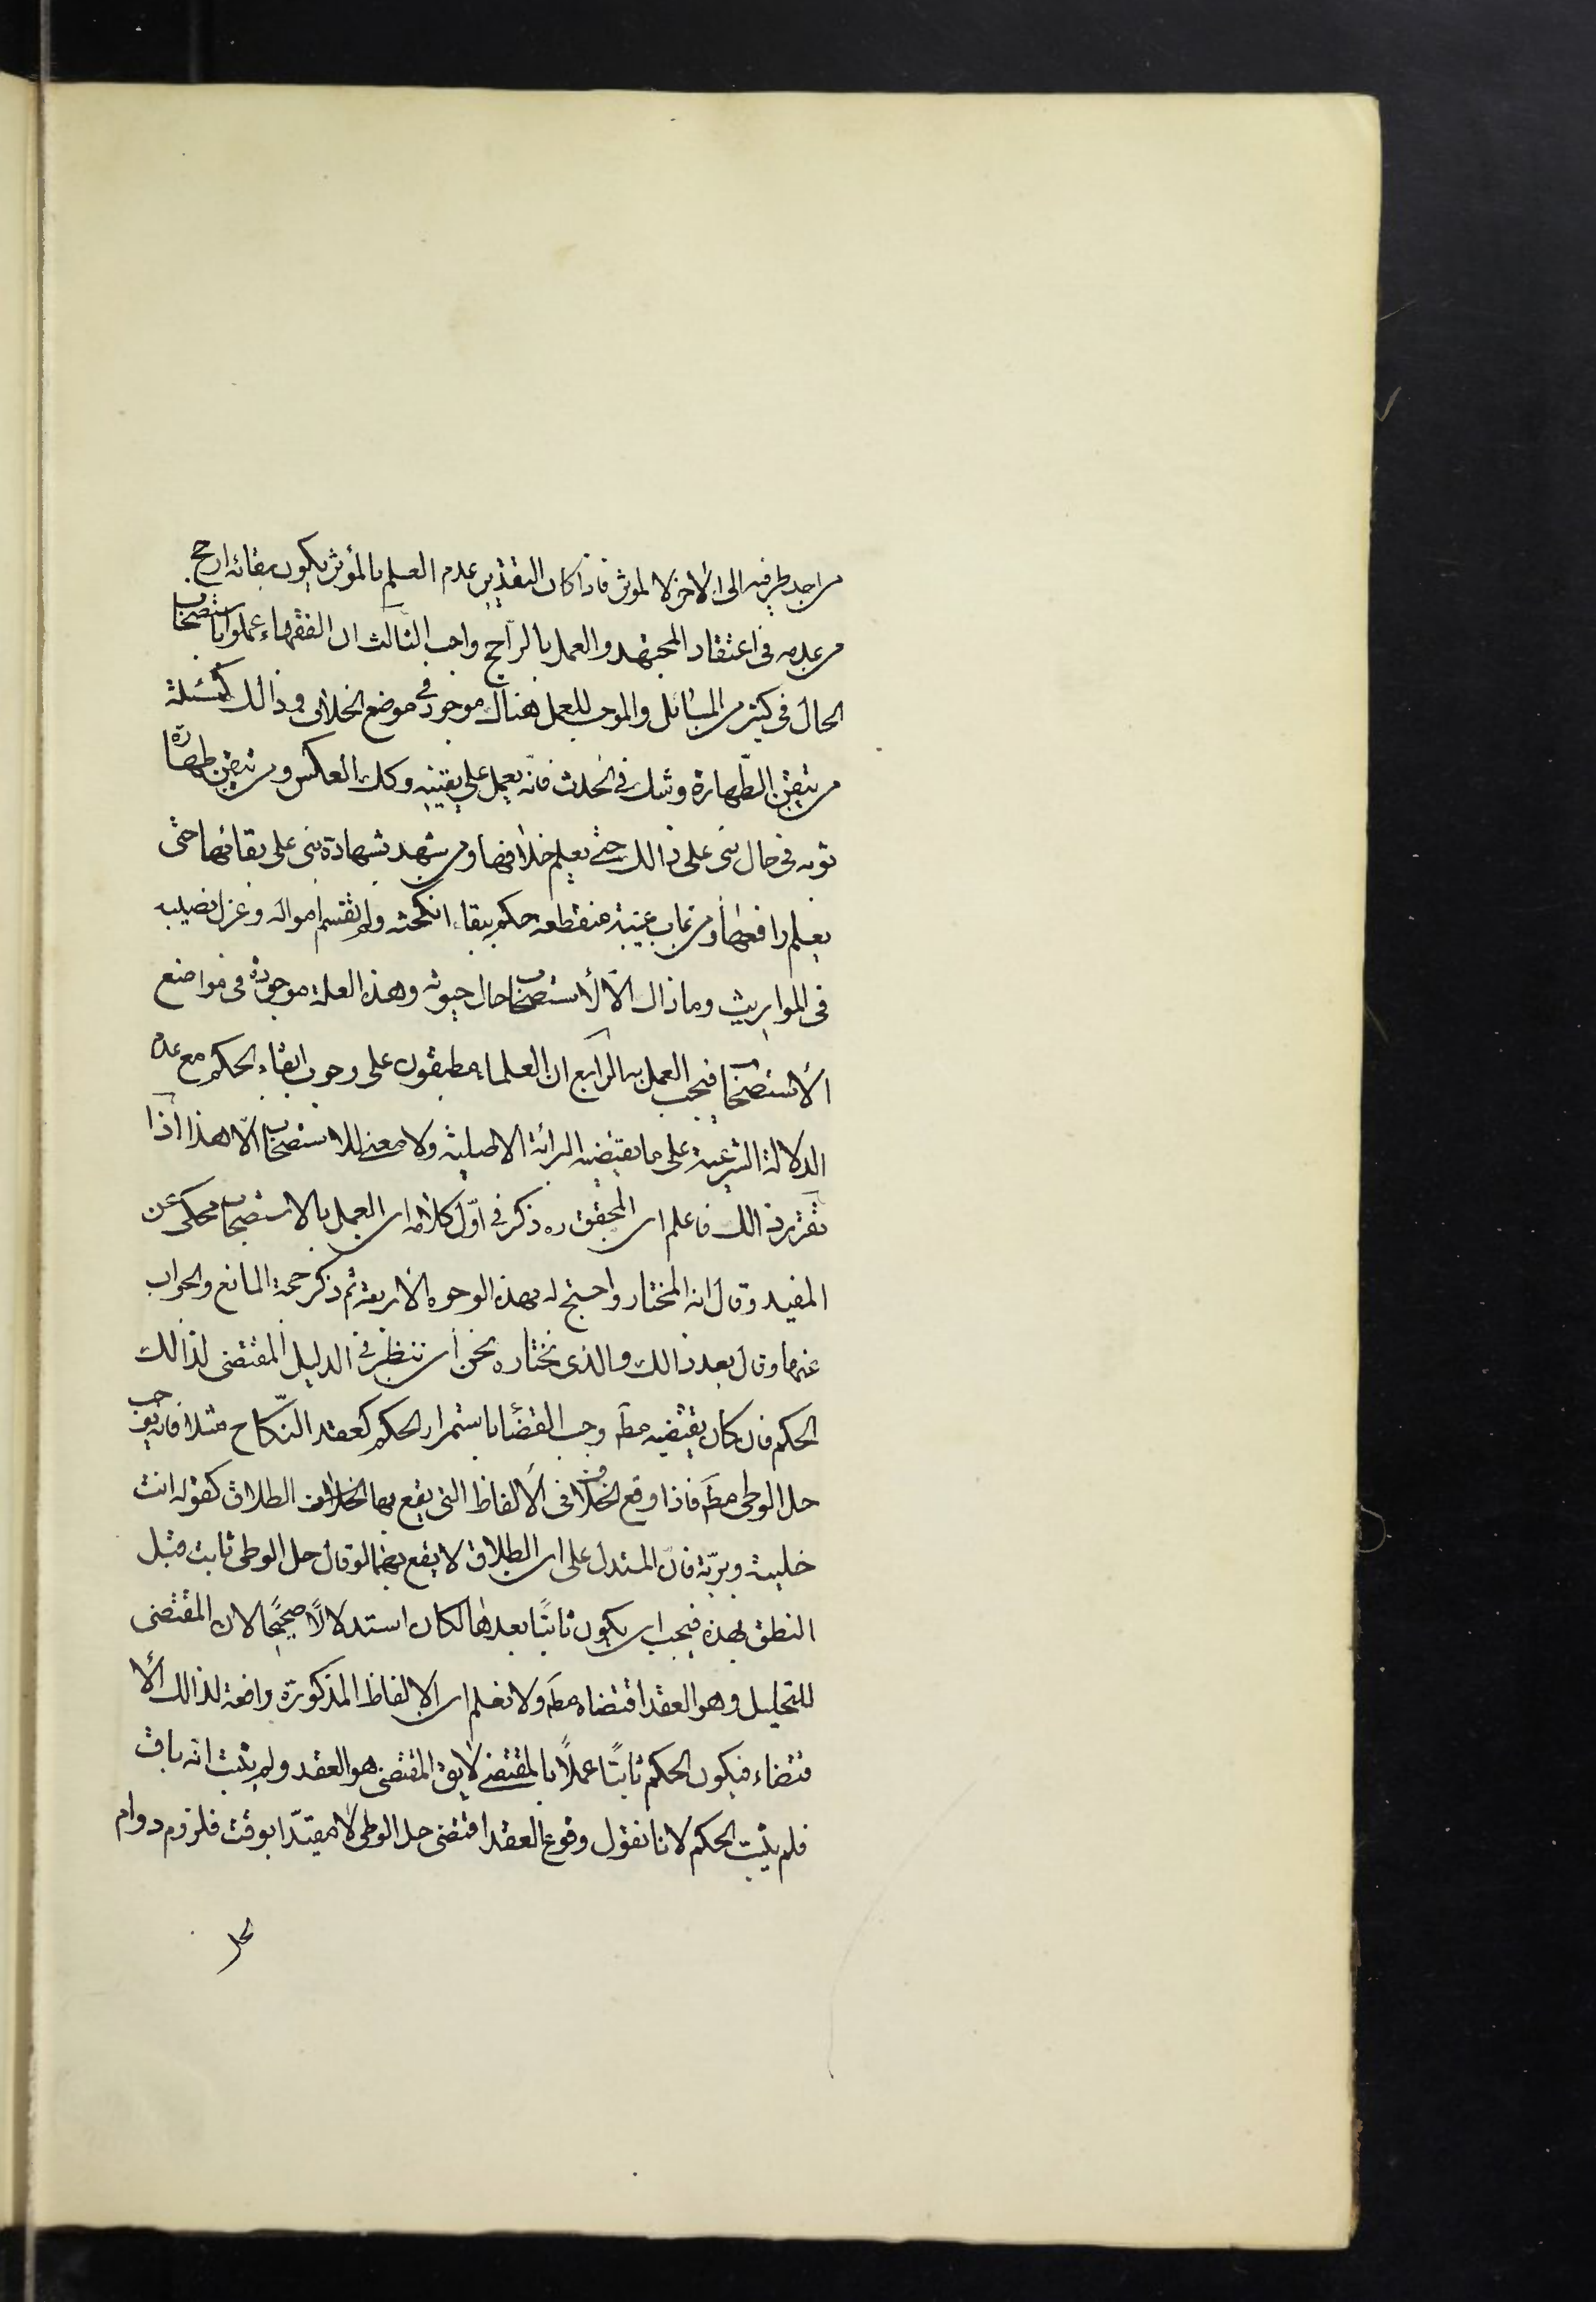 من احد طرفيه الى الاخر الا لمؤثر فاذا كان التقدير عدم العلم بالمؤثر يكون بقائه ارجح
من عدمه فى اعتقاد المجتهد والعمل بالراجح واجب الثالث ان الفقهاء عملوا باستصحاب
الحال فى كثير من المسائل والموجب للعمل هناك موجود فى موضع الخلاف وذالك كمسئلة
من تيقن الطّهارة وشك فى الحدث فانّه يعمل على يقينه وكك العكس ومن تيقن طهارة
ثوبه فى حال بنى على ذالك حتى يعلم خلافها ومن شهد بشهادة بنى على بقائها حتى
يعلم رافعها ومن غاب غيبة منقطعة حكم ببقاء انكحته ولم يقسم امواله وعزل نصيبه
فى المواريث وما ذاك الّا لأستصحاب حال حيوته وهذه العلة موجودة فى مواضع
الأستصحاب فيجب العمل به الرابع ان العلماء مطبقون على وجوب ابقاء الحكم مع عدم
الدلالة الشرعية على ما يقتضيه البرائة الاصلية ولا معنى للاستصحاب الّا هذا اذا
تقرر ذالك فاعلم ان المحقق ره ذكر فى اوّل كلامه ان العمل بالاستصحاب محكى عن
المفيد وقال انه المختار واحتج له بهذه الوجوه الاربعة ثم ذكر حجة المانع والجواب
عنها وقال بعد ذالك والذى نختاره نحن ان ننظر فى الدليل المقتضى لذالك
الحكم فان كان يقتضيه مطم وجب القضاء باستمرار الحكم كعقد النّكاح مثلا فانه يوجب
حل الوطى مطم فاذا وقع الخلاف فى الألفاظ التى يقع بها الطلاق كقوله انت
خلية وبريّة فان المستدل على ان الطلاق لا يقع بهما لو قال حل الوطى ثابت قبل
النطق بهذه فيجب ان يكون ثابتًا بعدها لكان استدلالًا صحيحًا لان المقتضى
للتحليل وهو العقد اقتضاه مطم ولا نعلم ان الالفاظ المذكورة رافعة لذالك الأ
قتضاء فيكون الحكم ثابتًا عملًا بالمقتضى لا يق المقتضى هو العقد ولم يثبت انّه باق
فلم يثبت الحكم لانا نقول وقوع العقد اقتضى حل الوطى لا مقيّدا بوقت فلزم دوام
الحل